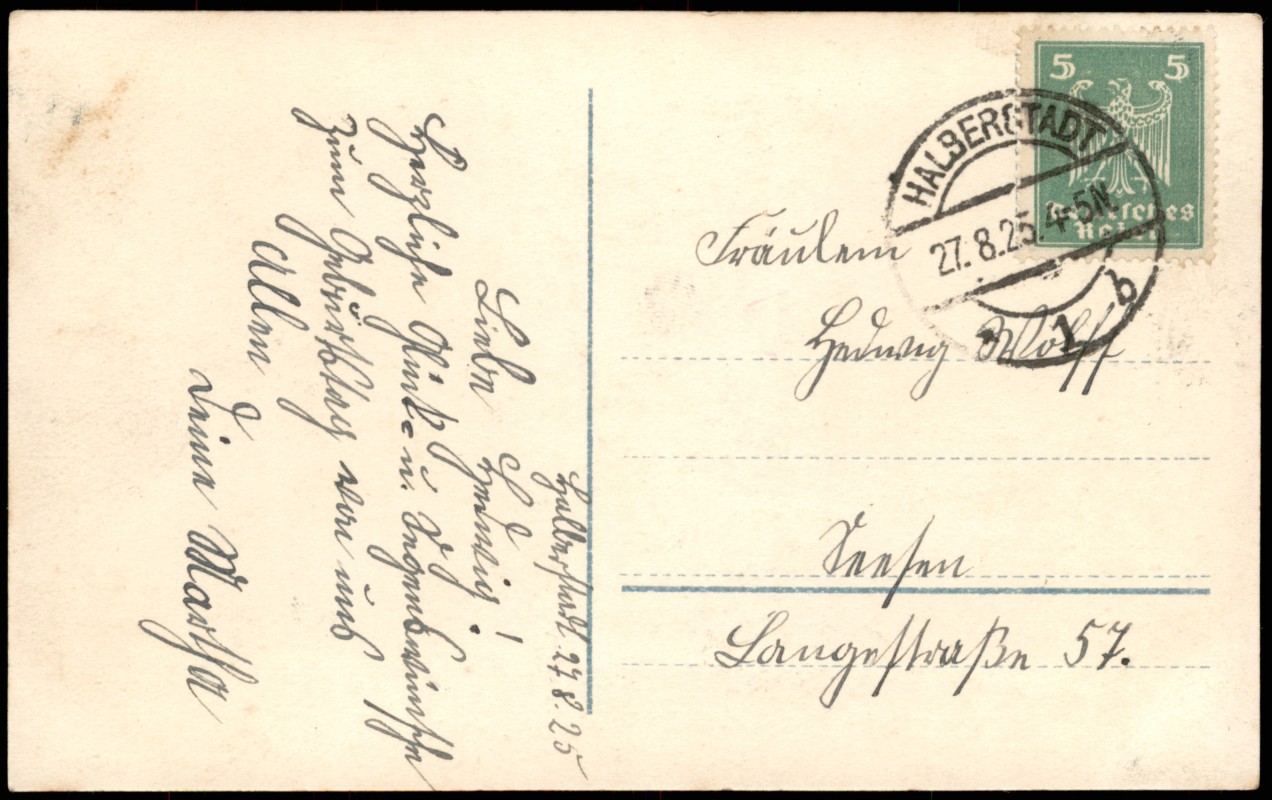 Halberstadt. 27.8.25
Liebe Hedwig!
Herzliche Glück- u. Segenswünsche
zum Geburtstag von uns
allen
Deine Martha
5 5
Deutsches
Reich
HALBERSTADT
27.8.25. 4-5N.
1 b
Fräulein
Hedwig Wolff
Seesen
Langestraße 57.